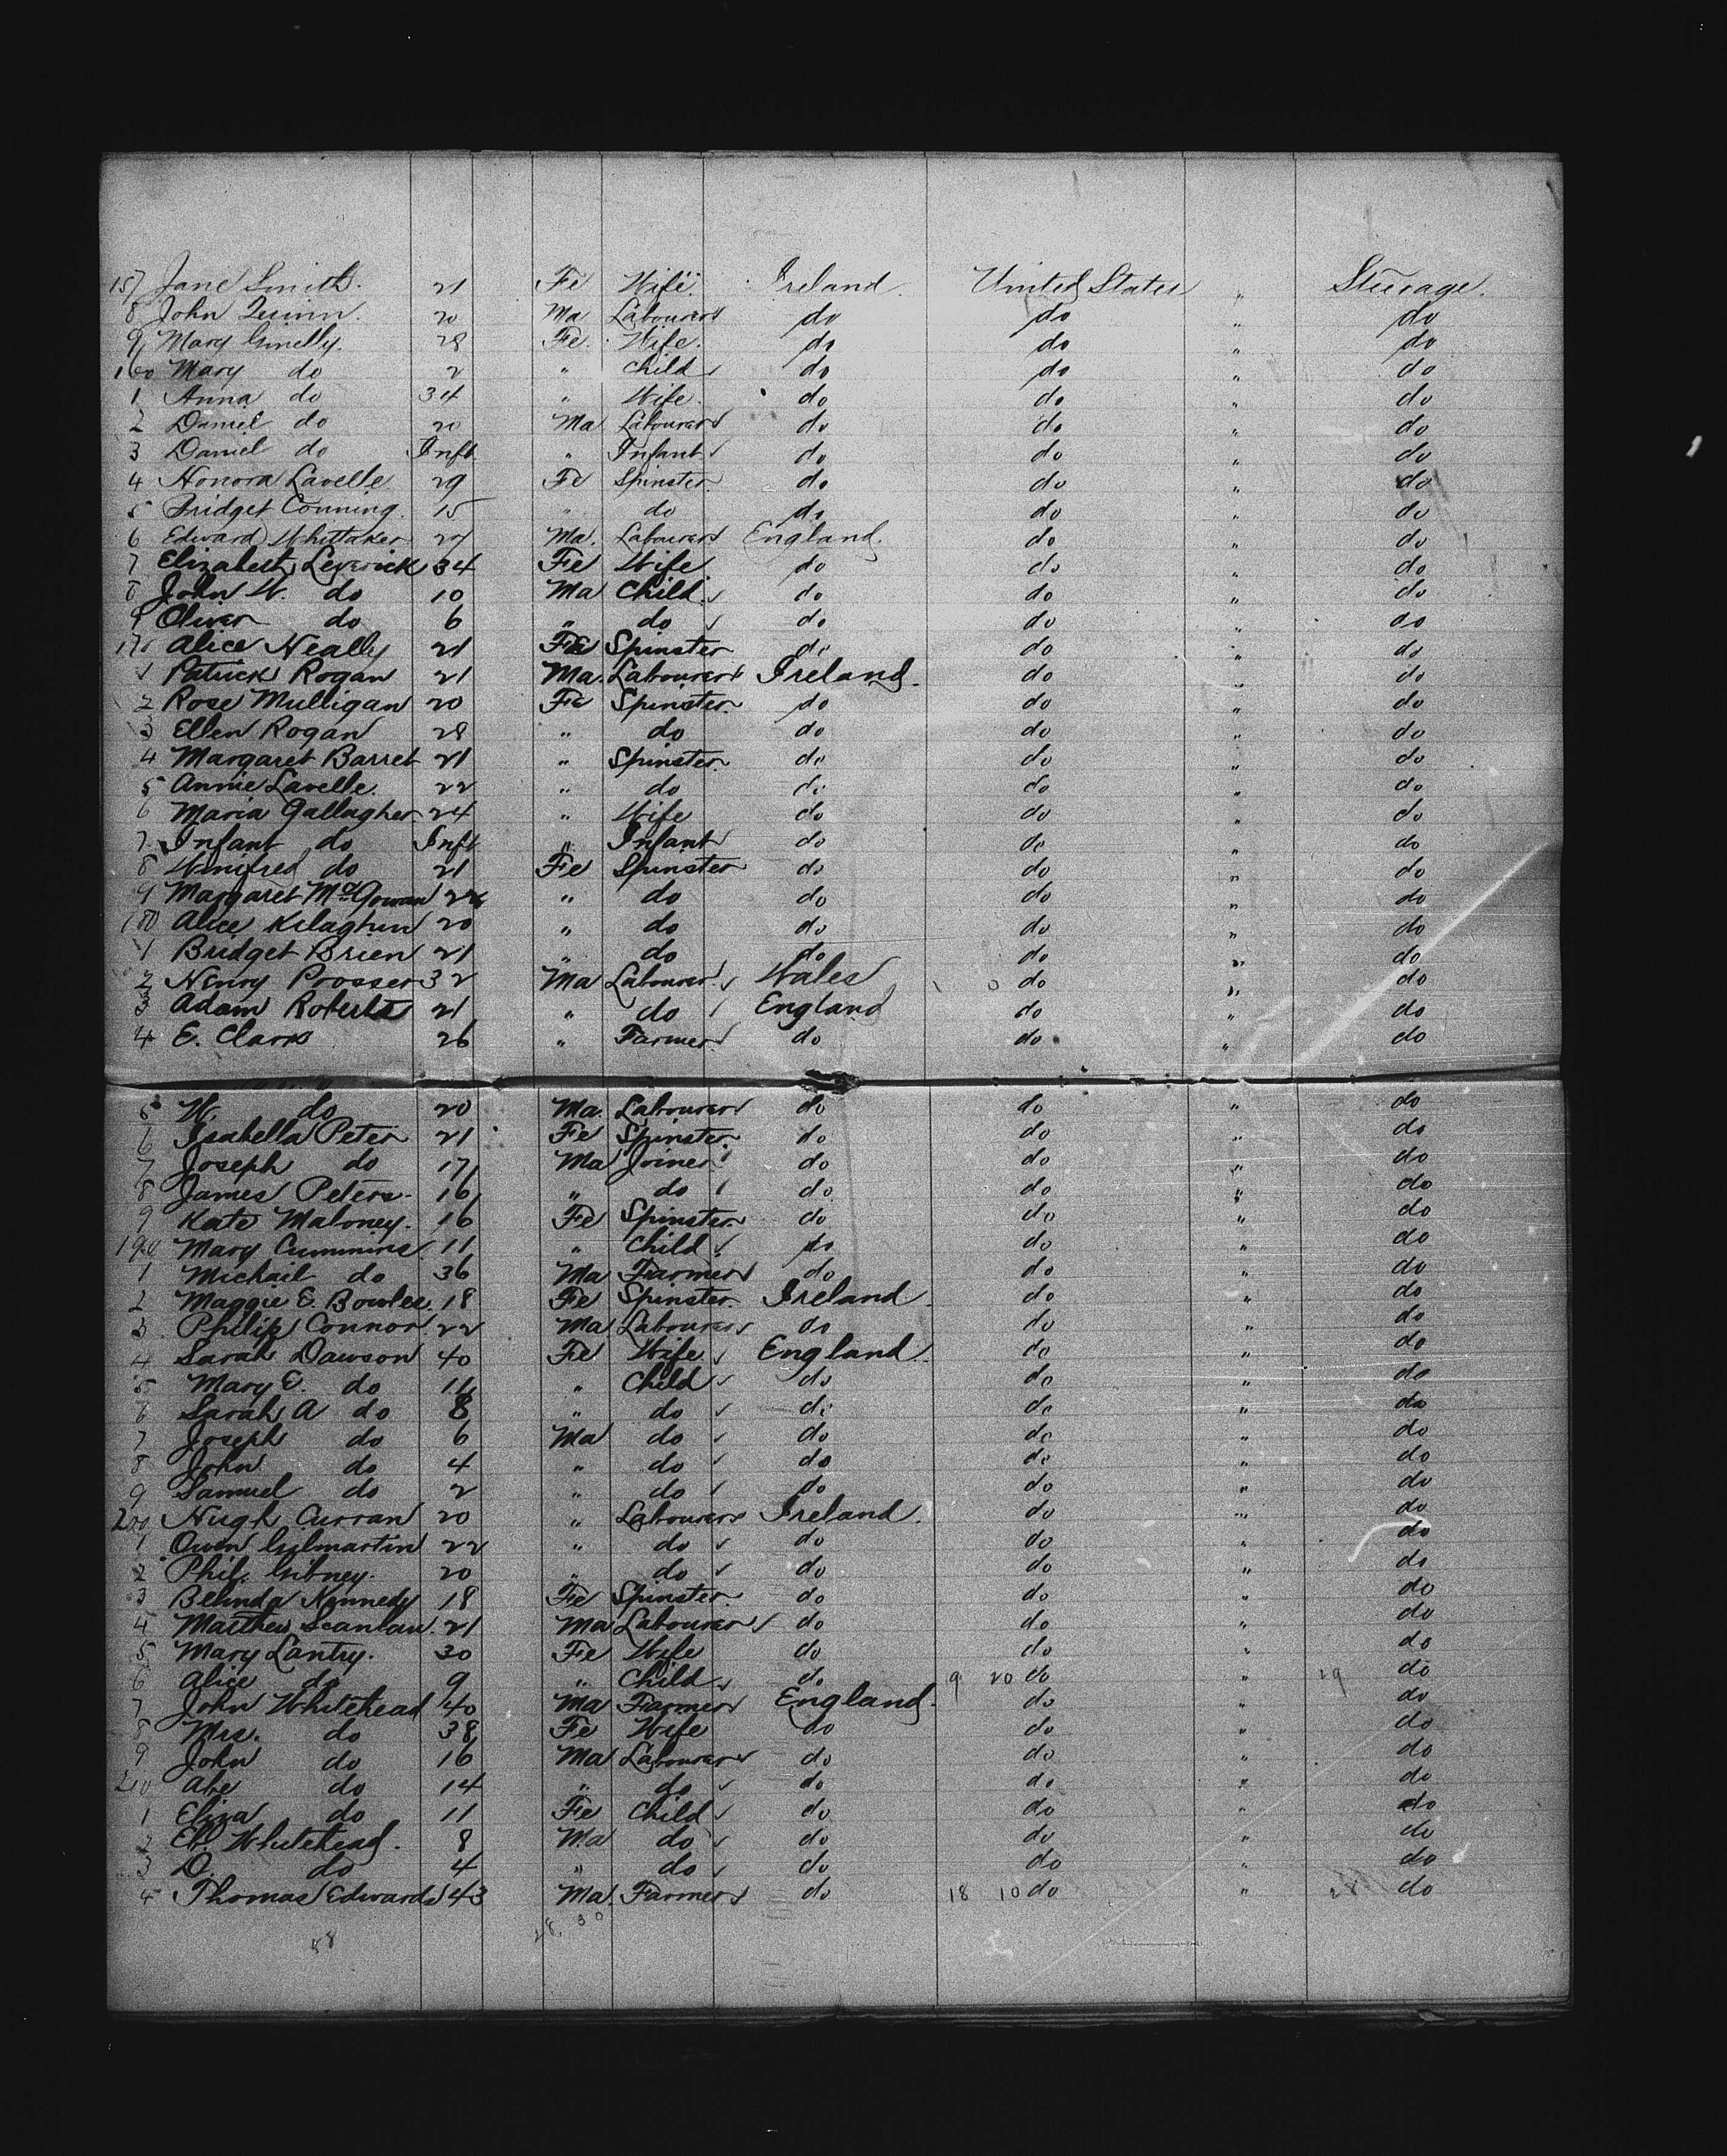 157 Jane Smith. 21 Fe Wife. Ireland. United States " Steerage.
8 John Quinn. 20 Ma Labourer do do " do
9 Mary Ginelly. 28 Fe. Wife. do do " do
160 Mary do 2 " Child do do " do
1 Anna do 34 " Wife. do do " do
2 Daniel do 20 Ma Labourer do do " do
3 Daniel do Inft " Infant do do " do
4 Honora Lavelle 29 Fe Spinster. do do " do
5 Bridget Conning. 15 " do do do " do
6 Edward Whittaker 27 Ma. Labourer England. do " do
7 Elizabeth Leverick 34 Fe Wife do do " do
8 John W. do 10 Ma Child. do do " do
9 Oliver do 6 " do do do " do
170 Alice Neally 21 Fe Spinster do do " do
1 Patrick Rogan 21 Ma. Labourer Ireland. do " do
2 Rose Mulligan 20 Fe Spinster. do do " do
3 Ellen Rogan 28 " do do do " do
4 Margaret Barret 21 " Spinster. do do " do
5 Annie Lavelle. 22 " do do do " do
6 Maria Gallagher 24 " Wife do do " do
7 Infant do Inft " Infant do do " do
8 Winifred do 21 Fe Spinster do do " do
9 Margaret McGowan " do do do " do
180 Alice Kilaghun 20 " do do do " do
1 Bridget Brien 21 " do do do " do
2 Henry Prosser 32 Ma Labourer. Wales do " do
3 Adam Roberts 21 " do England do " do
4 E. Clark 26 " Farmer. do do " do
5 W. do 20 Ma. Labourer do do " do
6 Isabella Peter 21 Fe Spinster. do do " do
7 Joseph do 17 Ma Joiner do do " do
8 James Peters. 16 " do do do " do
9 Kate Maloney. 16 Fe Spinster. do do " do
190 Mary Cummins 11 " Child do do " do
1 Michail do 36 Ma Farmer do do " do
2 Maggie E. Bowles. 18 Fe Spinster. Ireland. do " do
3 Philip Connor. 22 Ma Labourer do do " do
4 Sarah Dawson 40 Fe Wife England. do " do
5 Mary E. do 11 " Child do do " do
6 Sarah A do 8 " do do do " do
7 Joseph do 6 Ma do do do " do
8 John do 4 " do do do " do
9 Samuel do 2 " do do do " do
200 Hugh Curran 20 " Labourer Ireland. do " do
1 Owen Gilmartin 22 " do do do " do
2 Phil. Gibney. 20 " do do do " do
3 Belinda Kennedy 18 Fe Spinster. do do " do
4 Matthew Scanlan. 21 Ma Labourer do do " do
5 Mary Lantry. 30 Fe Wife do do " do
6 Alice do 9 " Child do 9 20 do " 29 do
7 John Whitehead 40 Ma Farmer England. do " do
8 Mrs. do 38 Fe Wife do do " do
9 John do 16 Ma Labourer do do " do
210 Abe do 14 " do do do " do
1 Eliza do 11 Fe Child do do " do
2 Eb. Whitehead. 8 Ma do do do " do
3 D. do 4 " do do do " do
4 Thomas Edwards 43 Ma. Farmer do 18 10 do " 28 do
58 28. 30